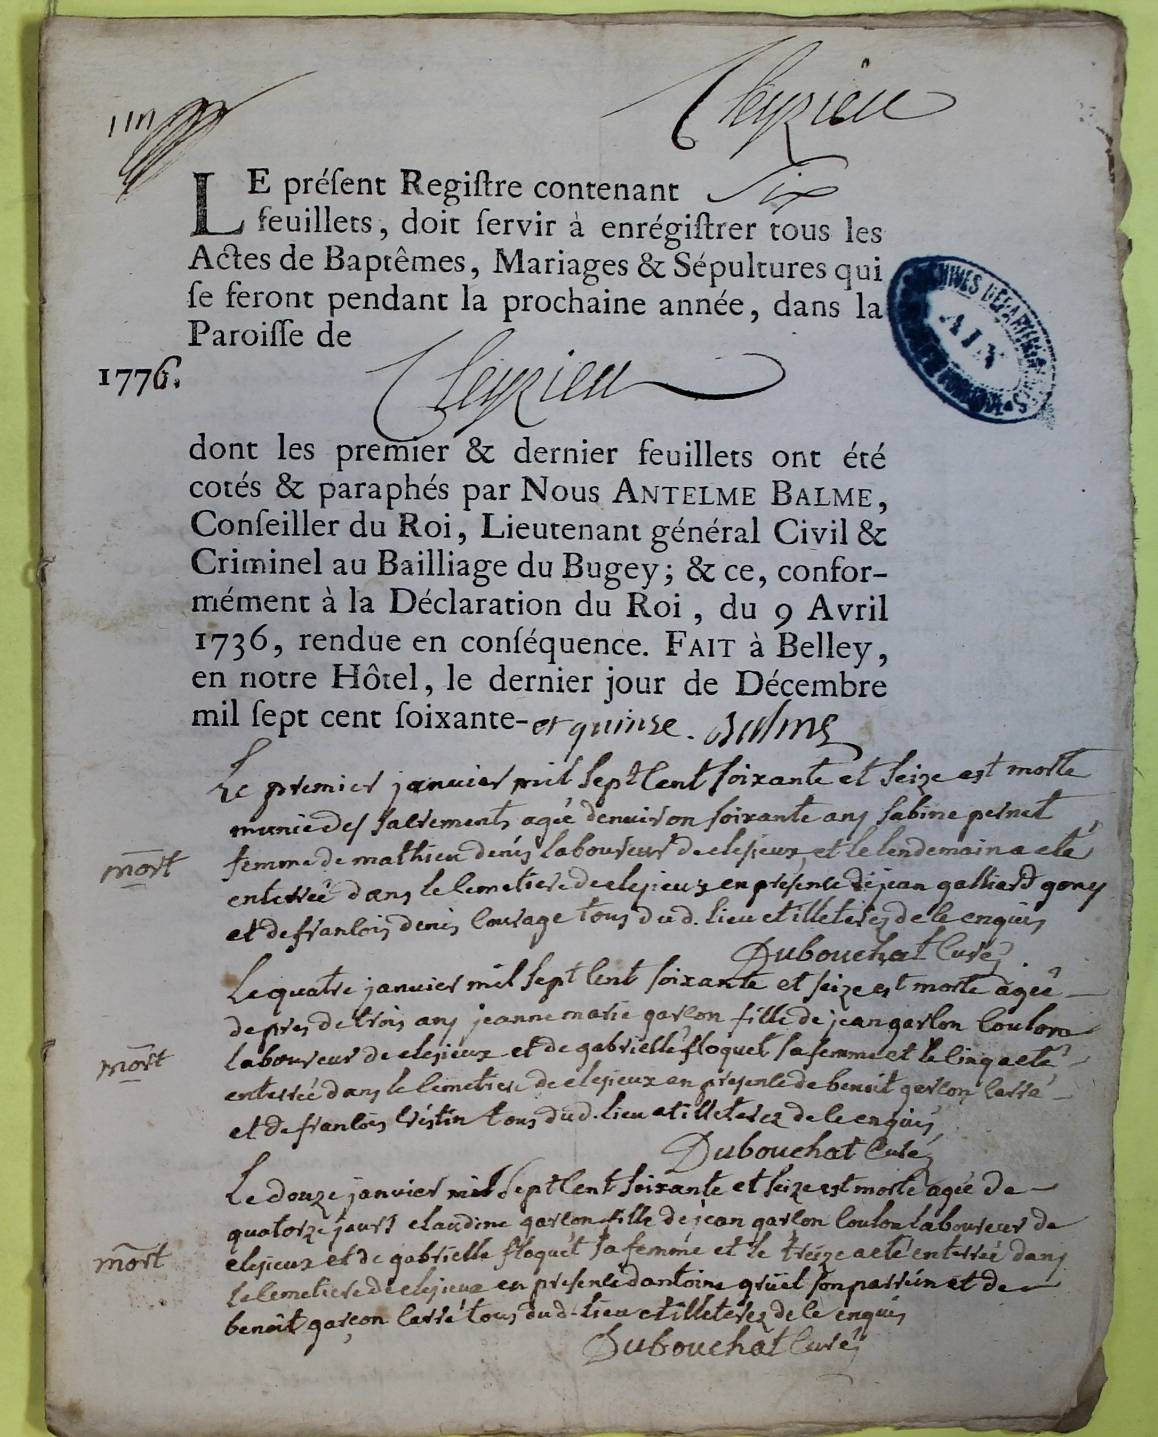 Cleyzieu
LE préſent Regiſtre contenant Six
feuillets, doit ſervir à enrégiſtrer tous les
Actes de Baptêmes, Mariages & Sépultures qui
ſe feront pendant la prochaine année, dans la
Paroiſſe de
1776. Cleyzieu
ARCHIVES DEPARTEMENTALES
AIN
dont les premier & dernier feuillets ont été
cotés & paraphés par Nous ANTELME BALME,
Conſeiller du Roi, Lieutenant général Civil &
Criminel au Bailliage du Bugey; & ce, confor-
mément à la Déclaration du Roi, du 9 Avril
1736, rendue en conſéquence. FAIT à Belley,
en notre Hôtel, le dernier jour de Décembre
mil ſept cent ſoixante-et quinze. Balme
Le premier janvier mil sept cent soixante et seize est morte
munie des sacrements agée denviron soixante ans sabine pernet
mort femme de mathieu denis laboureur de clesieux et le lendemain a eté
enterrée dans le cemetiere de clesieux en presence de jean galliard gony
et de francois denis courage tous dud. lieu et illeterez de ce enquis
Dubouchat curé
Le quatre janvier mil sept cent soixante et seize est morte agée
de pres de trois ans jeanne marie garçon fille de jean garçon coulon
mort laboureur de clesieux et de gabrielle floquet sa femme et le cinq a eté
enterrée dans le cemetiere de clesieux en presence de benoit garçon carré
et de francois cristin tous dud. lieu et illeterez de ce enquis
Dubouchat curé
Le douze janvier mil sept cent soixante et seize est morte agée de
quatorze jours claudine garçon fille de jean garçon coulon laboureur de
mort clesieux et de gabrielle floquet sa femme et le treize a eté enterrée dans
le cemetiere de clesieux en presence dantoine gruel son parrein et de
benoit garçon carré tous dud. lieu et illeterez de ce enquis
Dubouchat curé